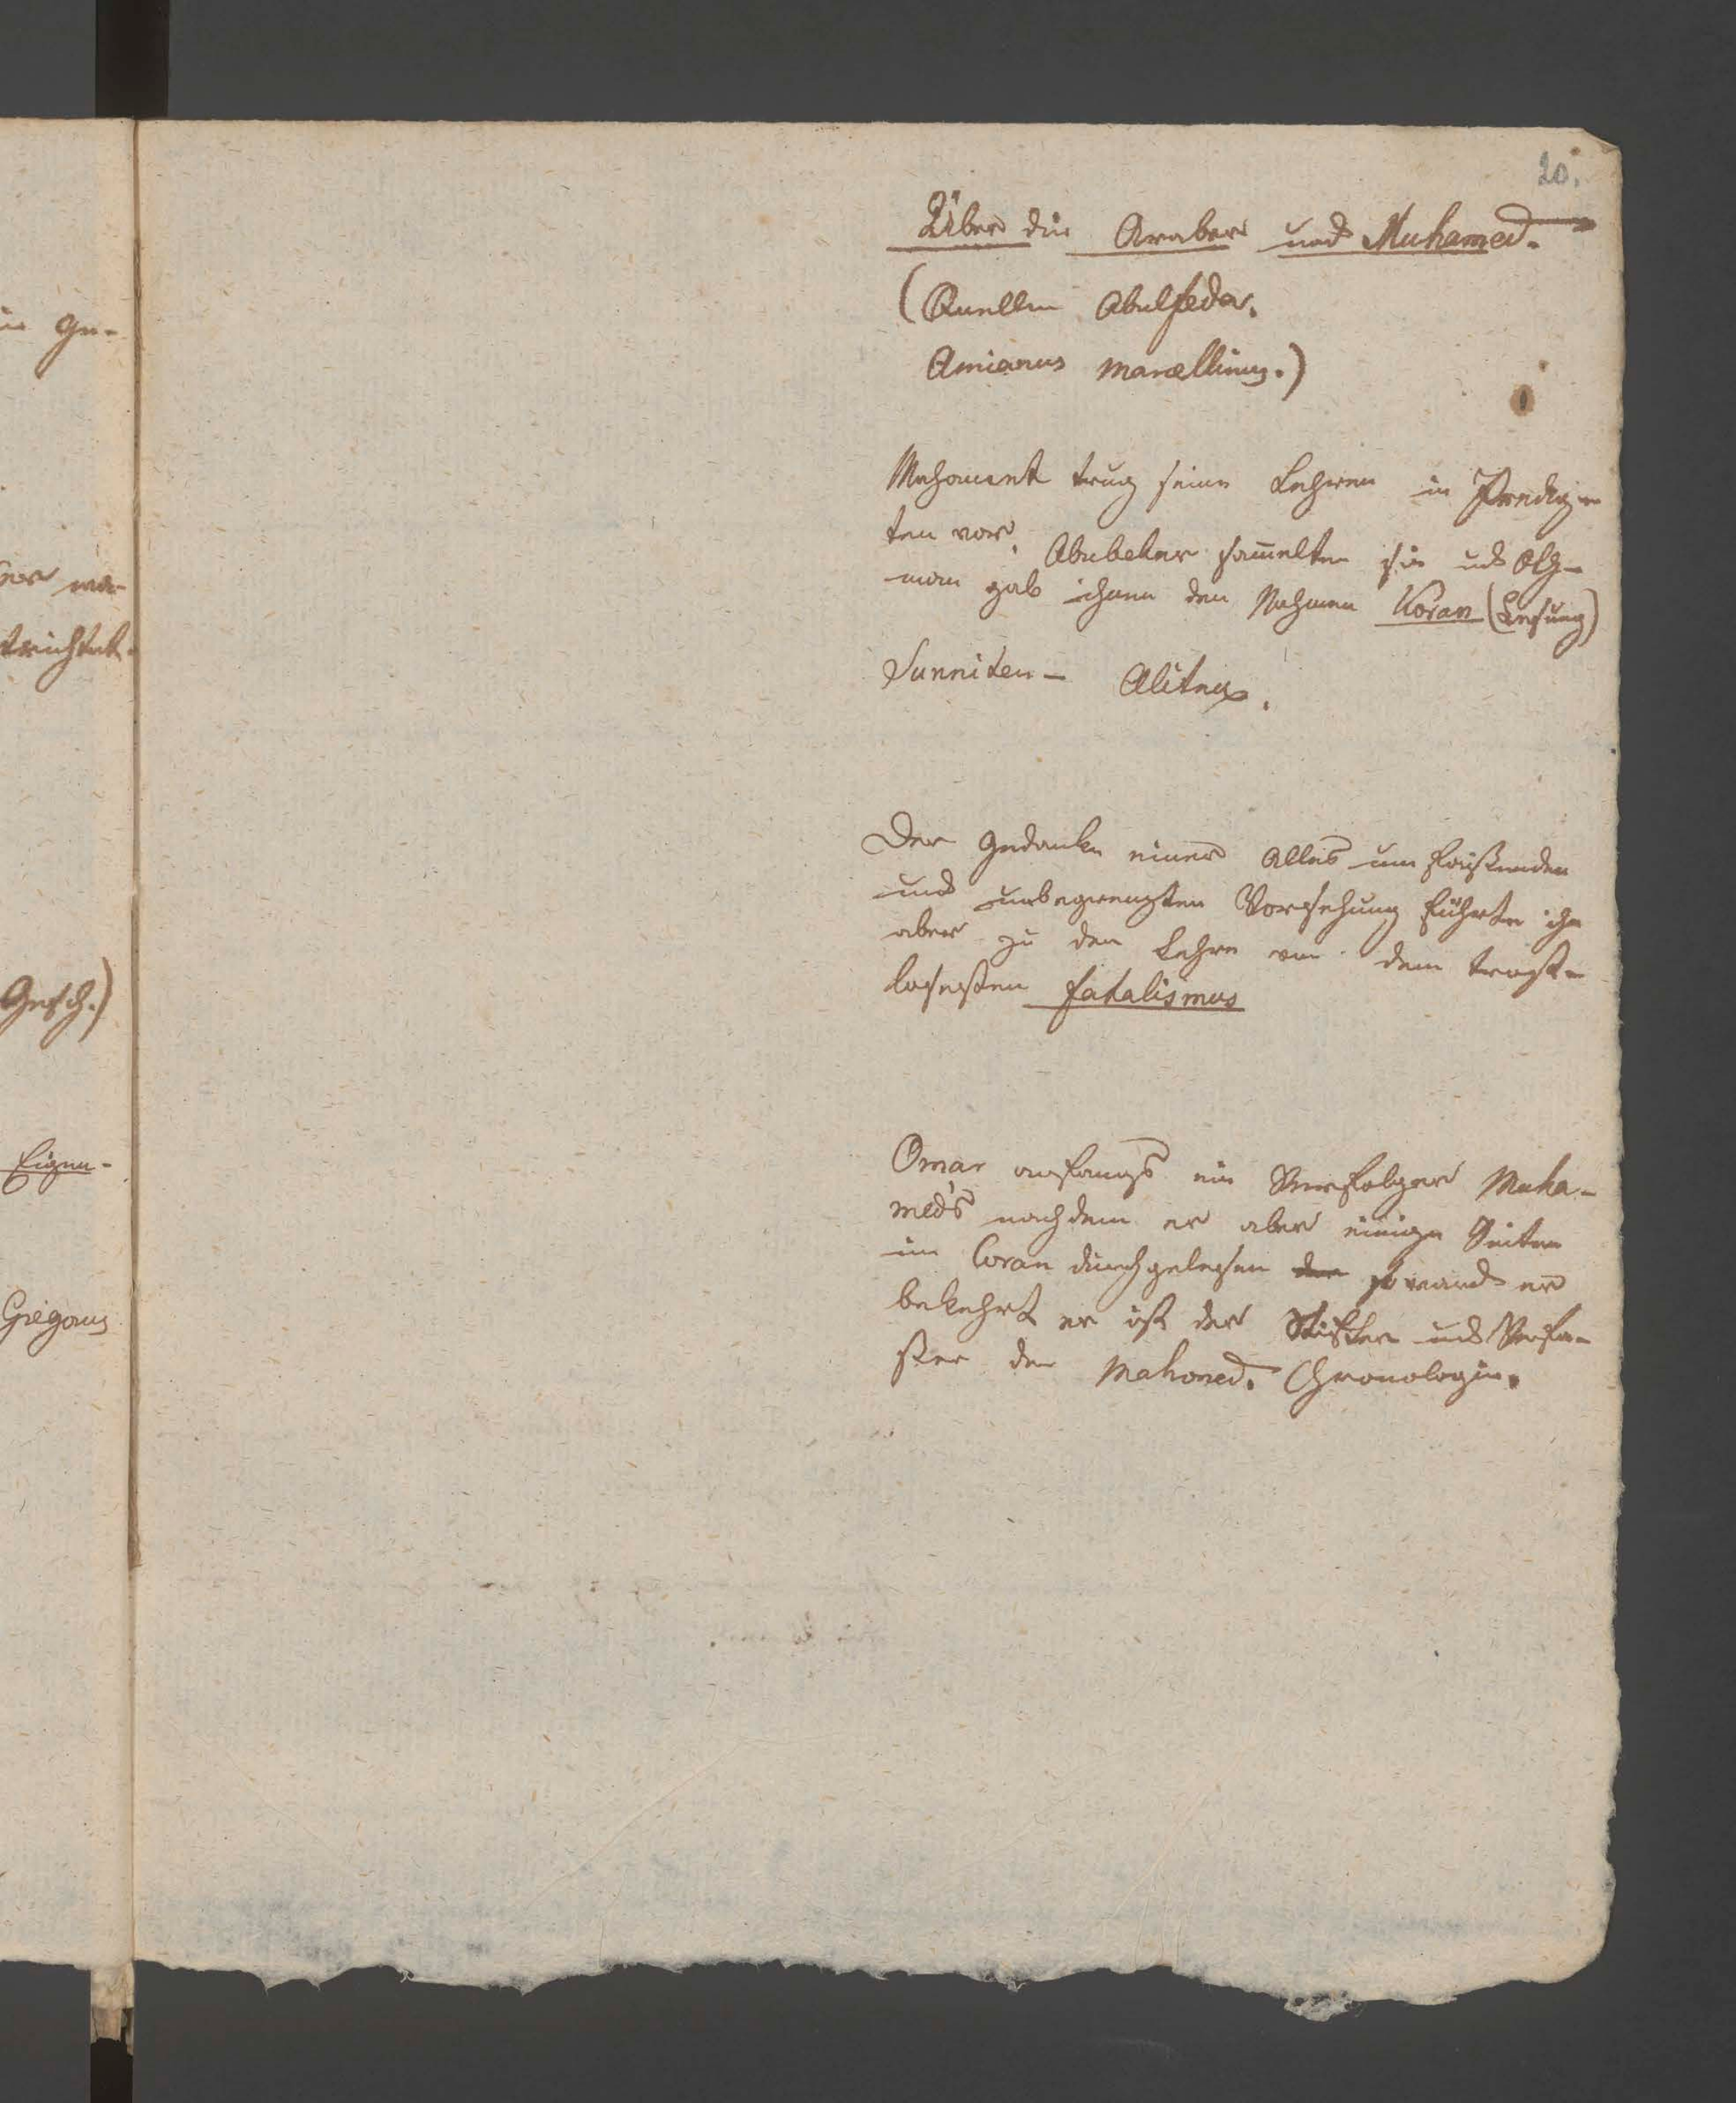 in Ge-
er ma-
trichtet.
Gesch.)
Eigen-
Gregorius
20.
Über die Araber und Muhamed.
(Quellen Abulfeda.
Amianus Marcellinus.)
Mahomet trug seine Lehren in Predig-
ten vor. Abubeker sammelte sie und Oth-
man gab ihnen den Nahmen Koran (Lesung)
Sunniten - Aliten.
Der Gedanke einer Alles um faßenden
und unbegrenzten Vorsehung führte ihn
aber zu der Lehre von dem trost-
losesten Fatalismus
Omar anfangs ein Verfolger Muha-
med's nachdem er aber einige Seiten
im Coran durchgelesen so ward er
bekehrt er ist der Stifter und Verfa-
ßer der Mahomed. Chronologie.